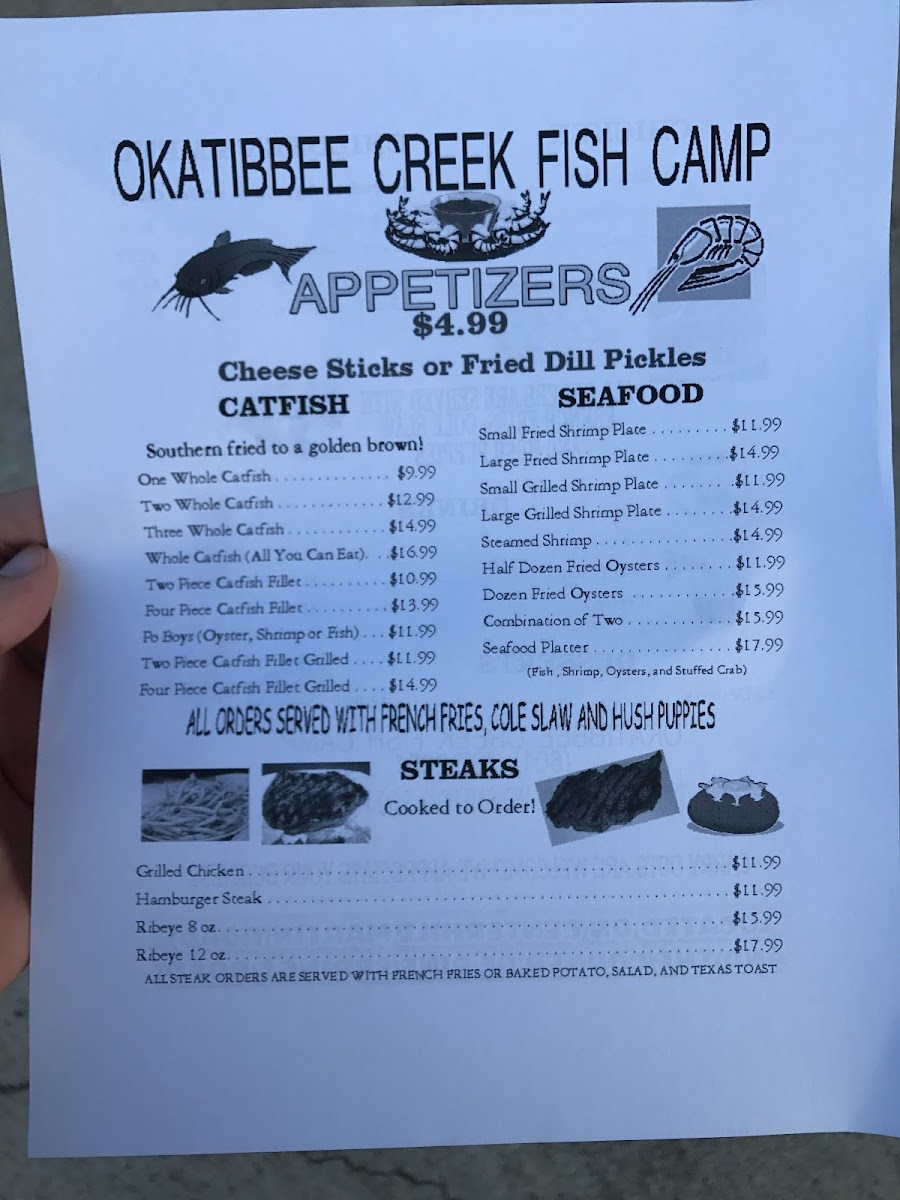 OKATIBBEE CREEK FISH CAMP
APPETIZERS
$4.99
Cheese Sticks or Fried Dill Pickles
CATFISH
Southern fried to a golden brown!
One Whole Catfish . . . . . . . . . . . . . . $9.99
Two Whole Catfish . . . . . . . . . . . . . $12.99
Three Whole Catfish . . . . . . . . . . . . $14.99
Whole Catfish (All You Can Eat). . . $16.99
Two Piece Catfish Fillet . . . . . . . . . . $10.99
Four Piece Catfish Fillet . . . . . . . . . . $13.99
Po Boys (Oyster, Shrimp or Fish) . . . $11.99
Two Piece Catfish Fillet Grilled . . . . $11.99
Four Piece Catfish Fillet Grilled . . . . $14.99
SEAFOOD
Small Fried Shrimp Plate . . . . . . . . . $11.99
Large Fried Shrimp Plate . . . . . . . . . $14.99
Small Grilled Shrimp Plate . . . . . . . . $11.99
Large Grilled Shrimp Plate . . . . . . . . $14.99
Steamed Shrimp . . . . . . . . . . . . . . . . $14.99
Half Dozen Fried Oysters . . . . . . . . $11.99
Dozen Fried Oysters . . . . . . . . . . . . $15.99
Combination of Two . . . . . . . . . . . . $15.99
Seafood Platter . . . . . . . . . . . . . . . . $17.99
(Fish , Shrimp, Oysters, and Stuffed Crab)
ALL ORDERS SERVED WITH FRENCH FRIES, COLE SLAW AND HUSH PUPPIES
STEAKS
Cooked to Order!
Grilled Chicken . . . . . . . . . . . . . . . . . . . . $11.99
Hamburger Steak . . . . . . . . . . . . . . . . . . . . $11.99
Ribeye 8 oz. . . . . . . . . . . . . . . . . . . . . $15.99
Ribeye 12 oz. . . . . . . . . . . . . . . . . . . . . $17.99
ALL STEAK ORDERS ARE SERVED WITH FRENCH FRIES OR BAKED POTATO, SALAD, AND TEXAS TOAST